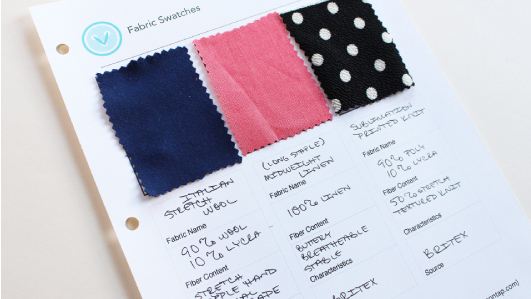 Fabric Swatches
ITALIAN
STRETCH WOOL
Fabric Name
90% WOOL
10% LYCRA
Fiber Content
STRETCH
HAND
(LONG STAPLE)
MIDWEIGHT
LINEN
Fabric Name
100% LINEN
Fiber Content
BUTERY
BREATHEABLE
STABLE
Characteristics
BRITEX
SUBLIMATION
PRINTED KNIT
Fabric Name
90% POLY
10% LYCRA
Fiber Content
50% STRETCH
TEXTURED KNIT
Characteristics
BRITEX
Source